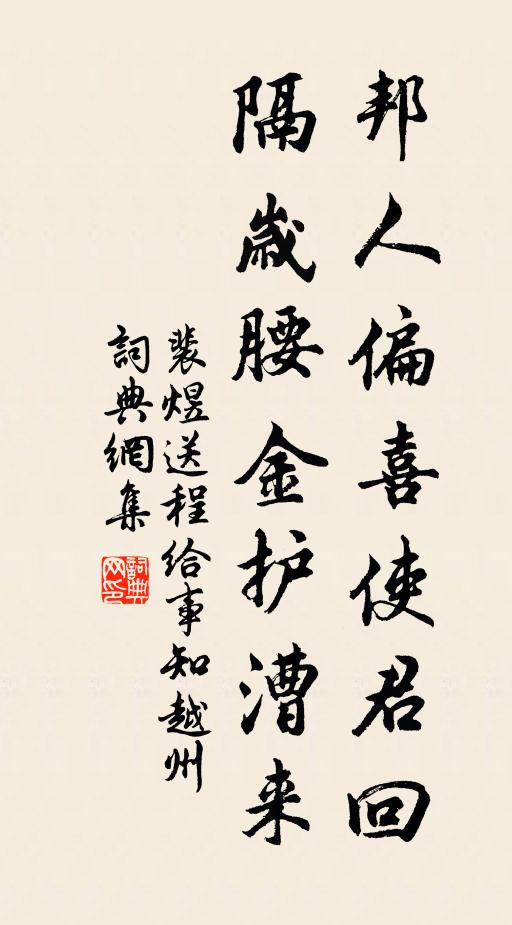 邦人偏喜使君回
隔歲腰金护漕来
裴煜送程给事知越州
詞典網集
詞典网印